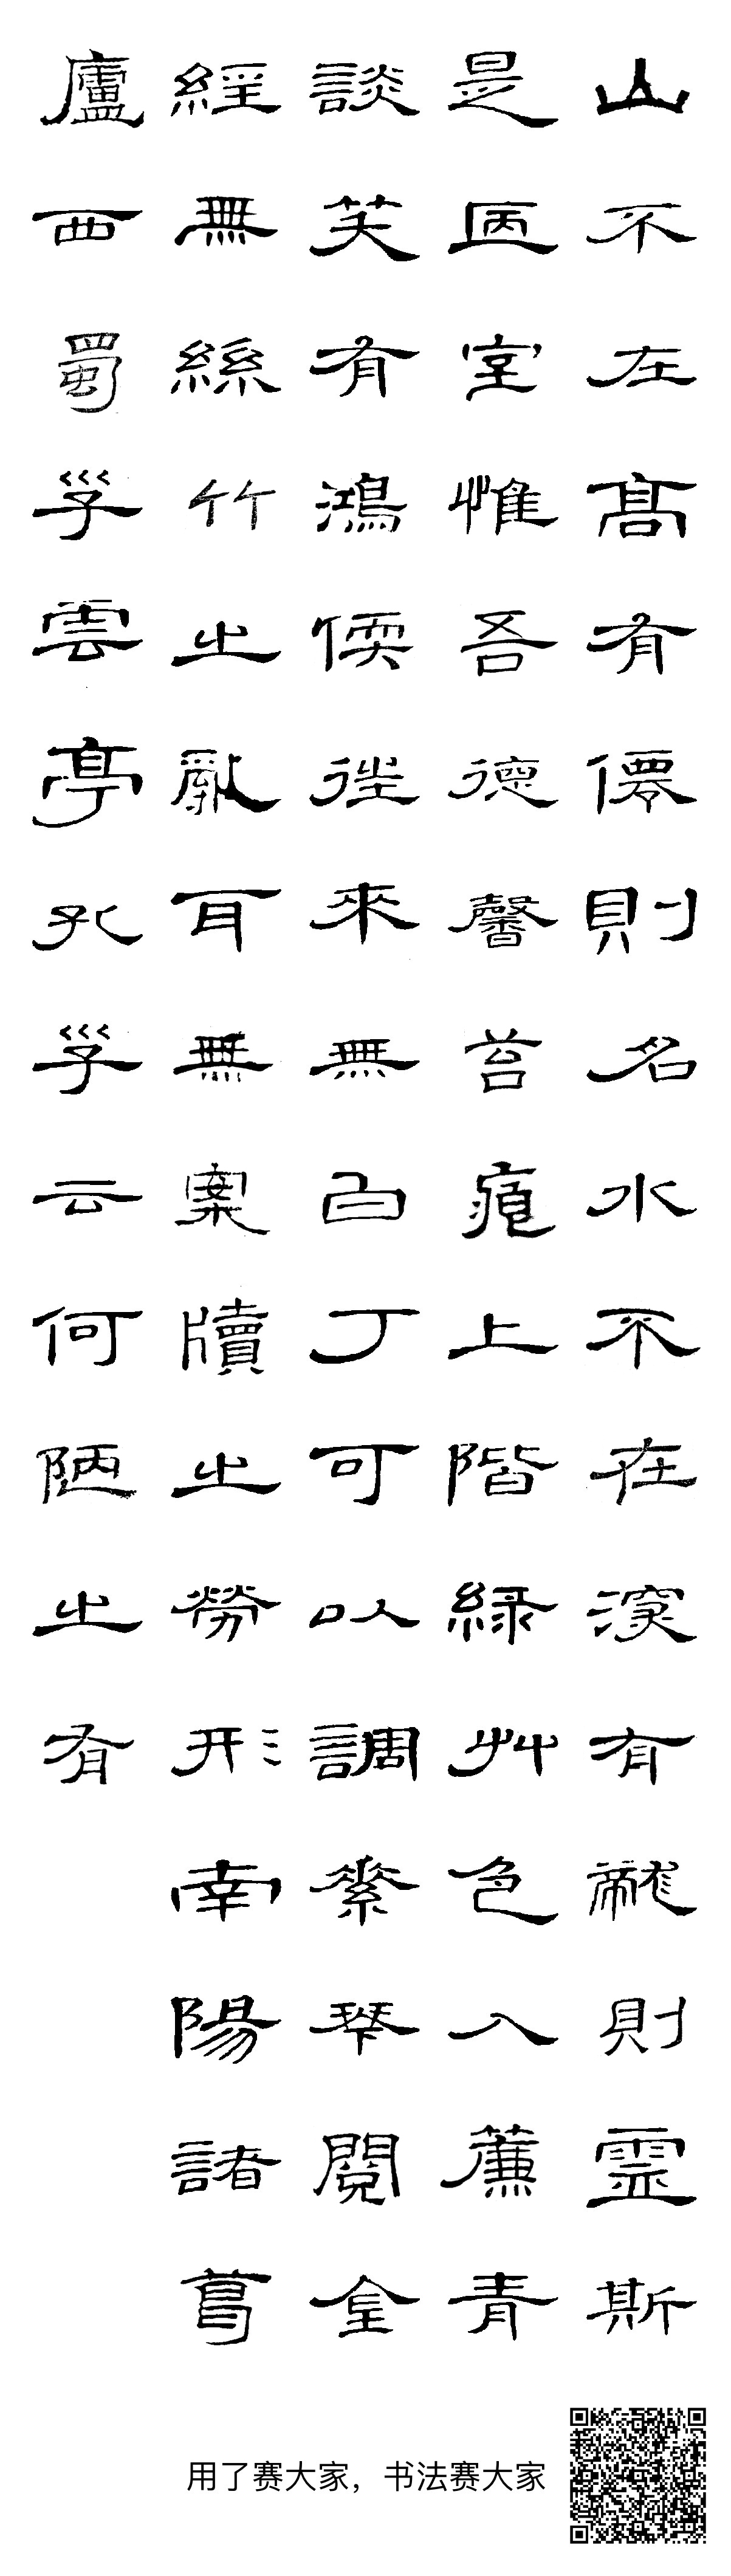 山不在髙有僊則名水不在深有龍則霊斯
是陋室惟吾德馨苔痕上階緑艸色入簾青
談笑有鴻儒往來無白丁可以調素琴閲金
經無絲竹之亂耳無案牘之勞形南陽諸葛
廬西蜀子雲亭孔子云何陋之有
用了赛大家，书法赛大家